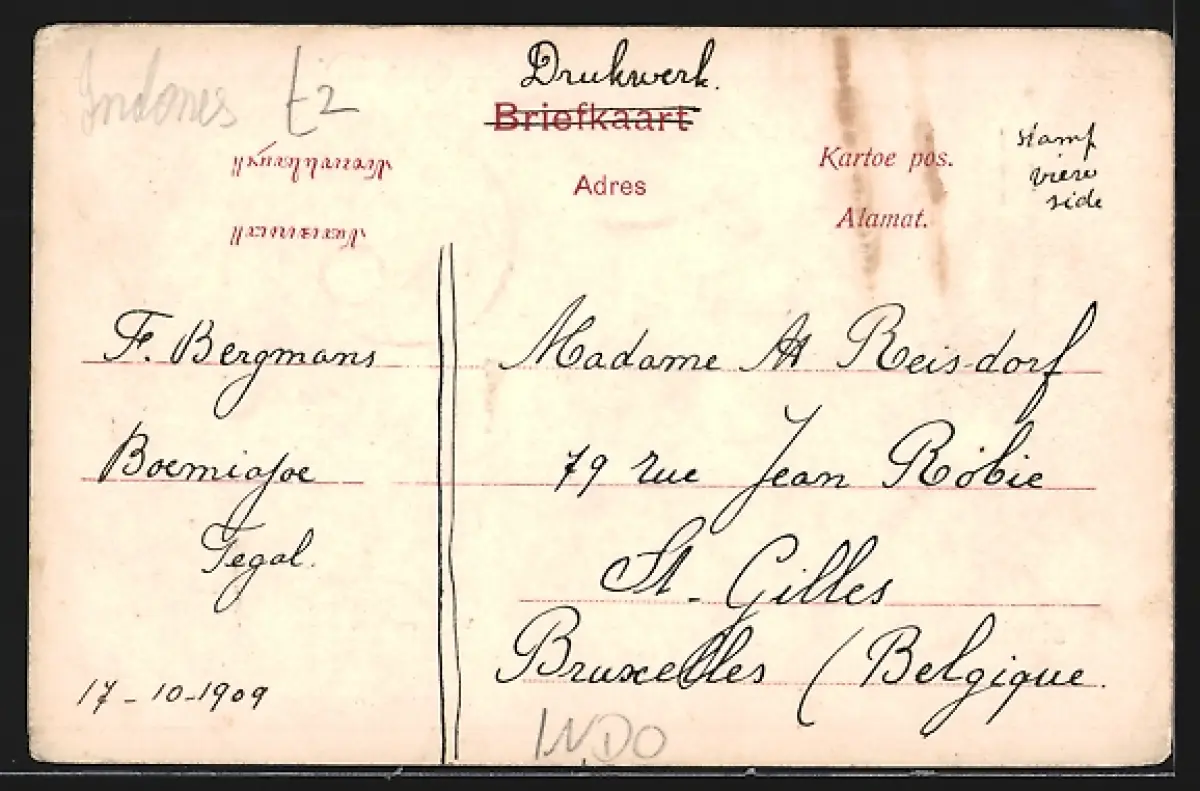 Indones £2
Drukwerk.
Briefkaart
Adres
Kartoe pos.
Alamat.
stamp
view
side
F. Bergmans
Boemiajoe
Tegal.
17-10-1909
Madame A Reisdorf
79 rue Jean Robie
St. Gilles
Bruxelles (Belgique.
INDO